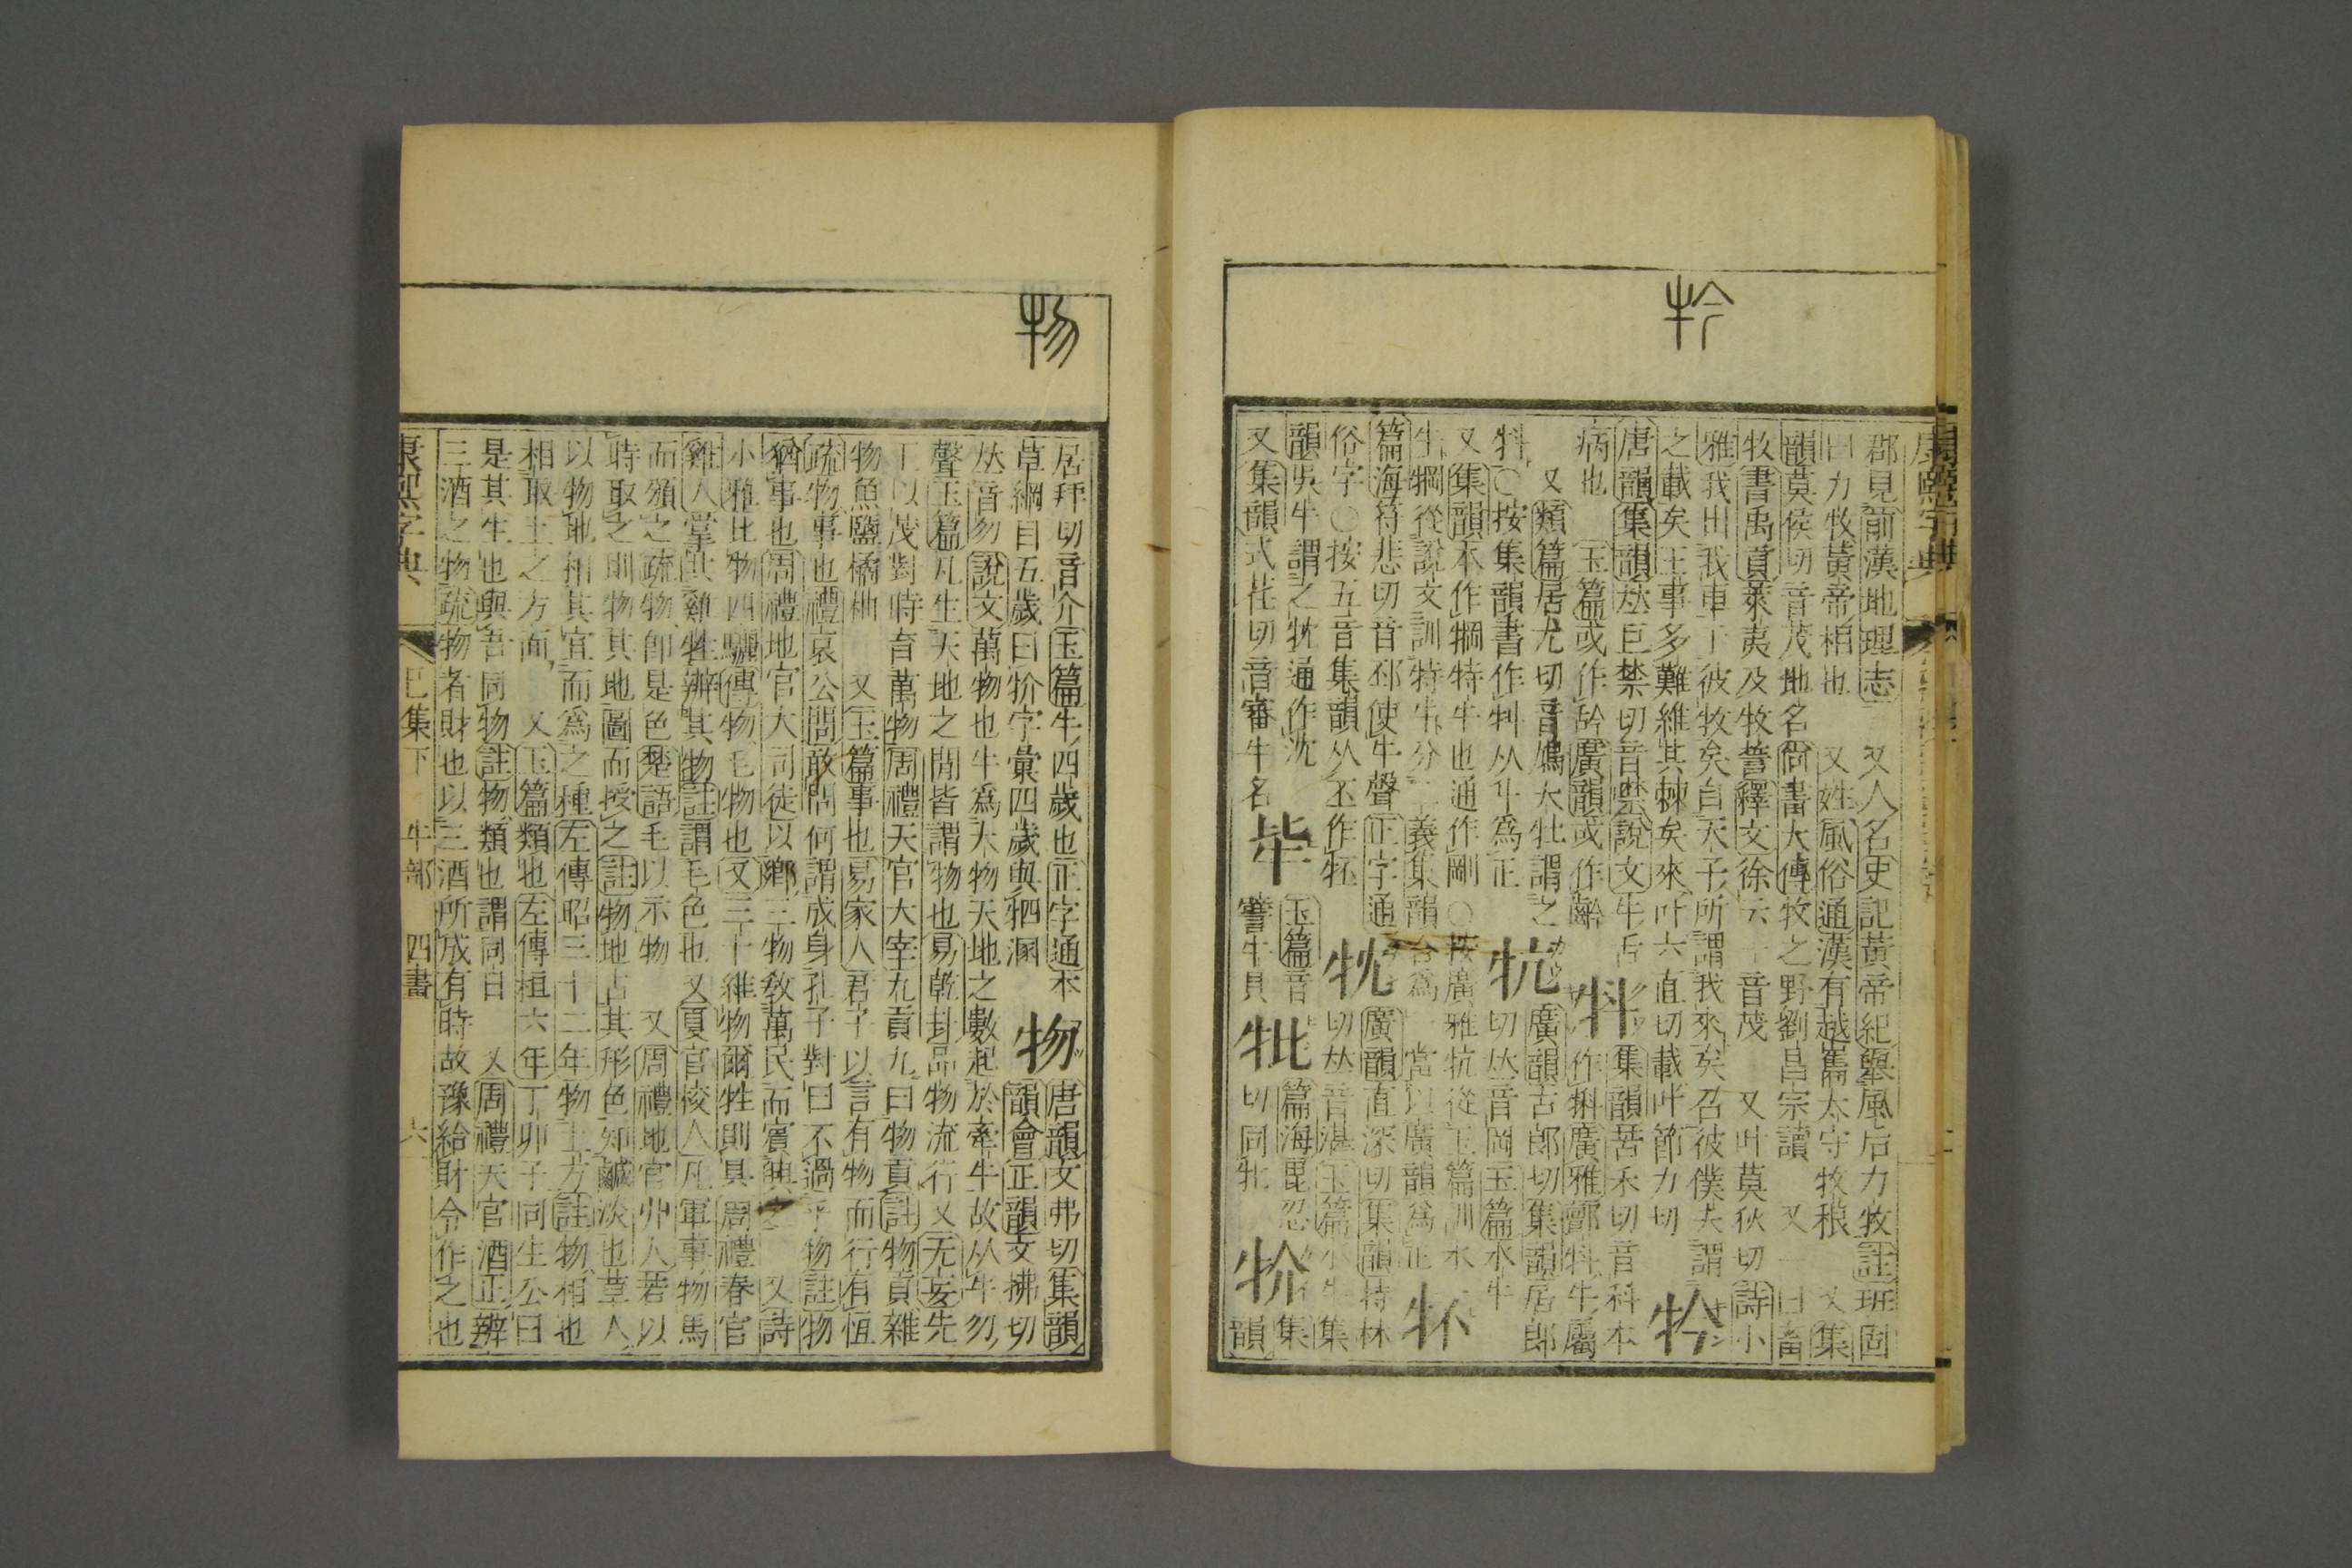 郡見前漢地理志 又人名史記黃帝紀舉風后力牧註班固
曰力牧黃帝相也 又姓風俗通漢有越嶲太守牧稂 又集
韻莫侯切音茂地名尚書大傳牧之野劉昌宗讀 又一曰畜
牧書禹貢萊夷及牧誓釋文徐云一音茂 又叶莫狄切詩小
雅我出我車于彼牧矣自天子所謂我來矣召彼僕夫謂
之載矣王事多難維其棘矣來叶六直切載叶節力切
唐韻集韻𠀤巨禁切音噤說文牛舌 集韻苦禾切音科本
病也 玉篇或作 廣韻或作 作犐廣雅郭 牛屬
又類篇居尤切音鳩大牡謂之 牨 廣韻古郎切集韻居郎
○按集韻書作 从斗為正 切𠀤音岡玉篇水牛
又集韻本作犅特牛也通作剛○按廣雅牨從玉篇訓水
牛犅從說文訓特牛分二義集韻合為一當以廣韻為正
篇海符悲切音邳使牛聲正字通 廣韻直深切集韻持林
俗字○按五音集韻从丕作 切𠀤音湛玉篇水牛集
韻吳牛謂之 通作沈 玉篇音 篇海毘忍 集
又集韻式荏切音審牛名 切同牝 韻
物
居拜切音介玉篇牛四歲也正字通本 唐韻文弗切集韻
草綱目五歲曰 字彙四歲與牭溷 物 韻會正韻文拂切
𠀤音勿說文萬物也牛為大物天地之數起於牽牛故从牛勿
聲玉篇凡生天地之閒皆謂物也易乾卦品物流行又无妄先
王以茂對時育萬物周禮天官大宰九貢九曰物貢註物貢雜
物魚鹽橘柚 又玉篇事也易家人君子以言有物而行有恆
疏物事也禮哀公問敢問何謂成身孔子對曰不過乎物註物
猶事也周禮地官大司徒以鄉三物敎萬民而賓興之 又詩
小雅比物四驪傳物毛物也又三十維物爾牲則具周禮春官
雞人掌共雞牲辨其物註謂毛色也又夏官校人凡軍事物馬
而頒之疏物卽是色楚語毛以示物 又周禮地官丱人若以
時取之則物其地圖而授之註物地占其形色知鹹淡也草人
以物地相其宜而為之種左傳昭三十二年物土方註物相也
相取土之方面 又玉篇類也左傳桓六年丁卯子同生公曰
是其生也與吾同物註物類也謂同日 又周禮天官酒正辨
三酒之物疏物者財也以三酒所成有時故豫給財令作之也
康熙字典 巳集下 牛部 四畫 六